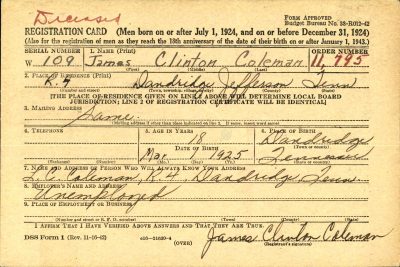 Deceased
FORM APPROVED
Budget Bureau No. 33-R012-42
REGISTRATION CARD (Men born on or after July 1, 1924, and on or before December 31, 1924)
(Also for the registration of men as they reach the 18th anniversary of the date of their birth on or after January 1, 1943.)
SERIAL NUMBER 1. NAME (Print) ORDER NUMBER
W 109 James Clinton Coleman 11,795
(First) (Middle) (Last)
2. PLACE OF RESIDENCE (Print)
R. 4 Dandridge Jefferson Tenn
(Number and street) (Town) (County) (State)
[THE PLACE OF RESIDENCE GIVEN ON LINE 2 ABOVE WILL DETERMINE LOCAL BOARD
JURISDICTION; LINE 2 OF REGISTRATION CERTIFICATE WILL BE IDENTICAL]
3. MAILING ADDRESS
Same.
[Mailing address if other than place indicated on line 2. If same, insert word same]
4. TELEPHONE 5. AGE IN YEARS 6. PLACE OF BIRTH
18 Dandridge
DATE OF BIRTH (Town or county)
Mar. 1 1925 Tennessee
(Exchange) (Number) (Mo.) (Day) (Yr.) (State or country)
7. NAME AND ADDRESS OF PERSON WHO WILL ALWAYS KNOW YOUR ADDRESS
Coleman, R. 4, Dandridge Tenn.
8. EMPLOYER'S NAME AND ADDRESS
Unemployed
9. PLACE OF EMPLOYMENT OR BUSINESS
(Number and street or R. F. D. number) (Town) (County) (State)
I AFFIRM THAT I HAVE VERIFIED ABOVE ANSWERS AND THAT THEY ARE TRUE.
DSS Form 1 (Rev. 11-16-42) (OVER) James Clinton Coleman
(Registrant's signature)